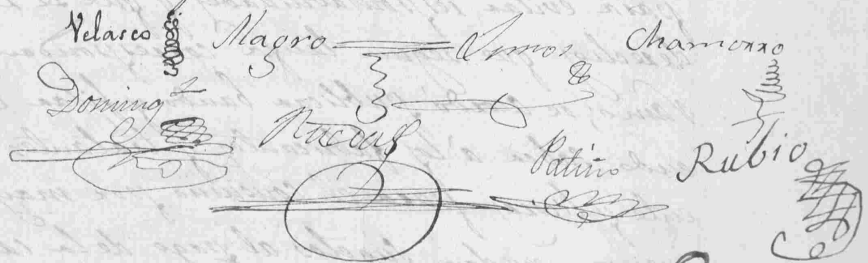 Velasco Magro Lemos Chamorro
Doming^z Macias Patiño Rubio